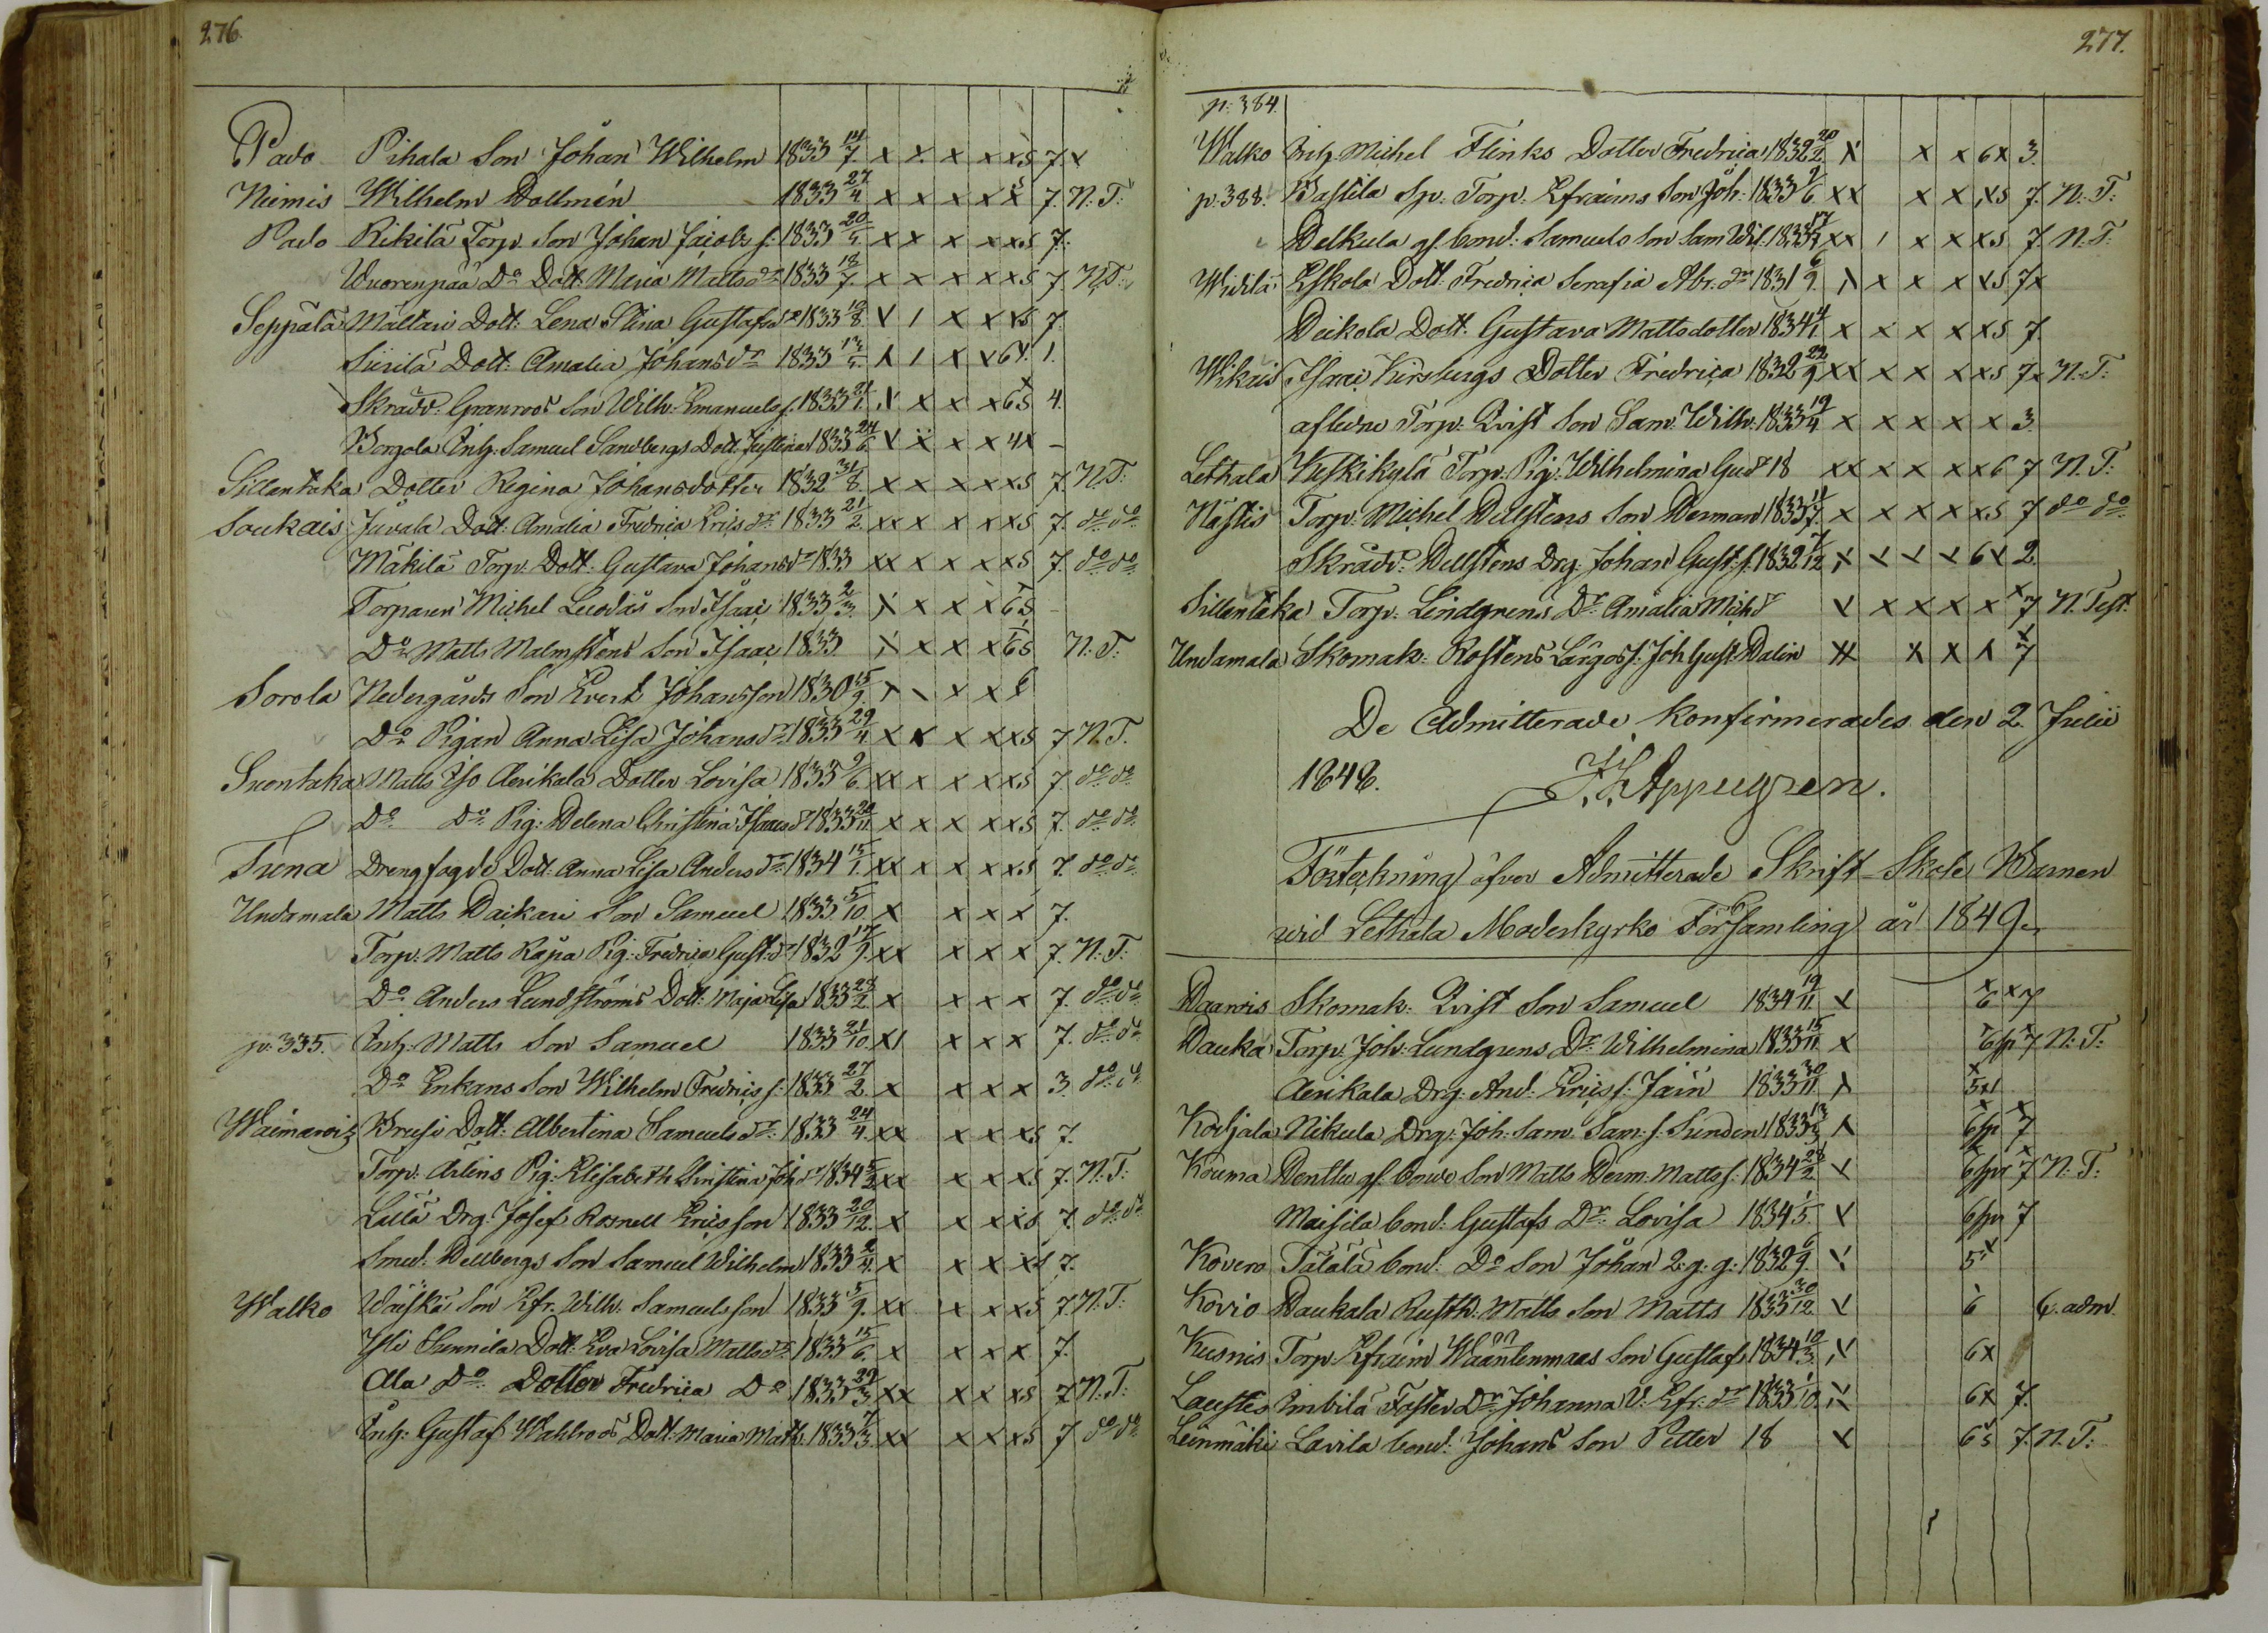 276.
Pado Pihala Son Johan Wilhelm 1833 14/7. x x x x x5 7 x
Niemis Wilhelm Dallmén 1833 27/4 x x x x x 7. N. T:
Pado Rikilä Torp. Son Johan Jacobs s: 1833 20/5. x x x x x5 7.
Wuorenpää Do Dott. Maria Matts dr 1833 18/7. x x x x x5 7 N.T:
Seppälä Mältäri Dott: Lena Stina Gustafs dr 1833 10/8. x 1 x x x5 7.
Siirilä Dott: Amalia Johans dr 1833 13/5. x 1 x x 6x. 1.
Skradd: Granroos Son Wilh: Emanuels s. 1833 21/1. x x x x 6 5 4.
Borgola Inh: Samuel Sandbergs Dott. Justina 1833 24/6. x x x x 4x –
Sillantaka Dotter Regina Johansdotter 1832 31/8. x x x x x5 7. N.T:
Soukais Juvala Dott: Amalia Fredrica Erics dr. 1833 21/2. xx x x x x5 7. do do
Mäkilä Torp: Dott: Gustava Johans dr 1833 xx x x x x5 7. do do
Torparen Michel Leodäs Son Isaac 1833 2/3. x x x x 6 5 –
Do Matts Malmstens Son Isaac 1833 x x x x 6 5 N. T:
Sorola Nedergårds Son Evert Johansson 1830 15/9. x x x x 6
Do Pigan Anna Lisa Johans dr 1833 29/4 x x x x x5 7 N.T.
Suontaka Matts Iso Äerikala Dotter Lovisa 1833 9/6. xx x x x x5 7. do do
Do Do Pig: Helena Christina Isaacs dr 1833 20/11 x x x x x5 7. do do
Tuna Drengfogde Dott: Anna Lisa Anders dr 1834 15/1. xx x x x x5 7. do do
Undamala Matts Daikari Son Samuel 1833 5/10. x x x x 7.
Torp: Matts Räpa Pig: Fredrica Gust: dr 1832 17/9. xx x x x 7. N. T:
Do Anders Lundströms Dott: Maja Lisa 1833 23/2. x x x x 7. do do
p: 335. Inh: Matts Son Samuel 1833 21/10. x1 x x x 7. do do
Do Enkans Son Wilhelm Fredrics s: 1833 27/2. x x x x 3. do do
Waimaro Dott: Albertina Samuels dr: 1833 24/4. xx x x x5 7.
Torp: Arlins Pig: Elisabeth Christina Joh dr 1834 5/2. xx x x x5 7. N. T:
Lillä Drg: Josef Rosnell Ericsson 1833 20/12. x x x x5 7. do do
Smed: Dellbergs Son Samuel Wilhelm 1833 2/4. x x x x5 7.
Walko Waiskä Son Efr. Wilh. Samuelsson 1833 5/9. xx x x x5 7 N.T:
Yli Sunnila Dott: Eva Lovisa Matts dr 1833 15/6. x x x x 7.
Ala Do Dotter Fredrica Do 1833 29/3. xx x x x5 7 N. T:
Inh: Gustaf Wahlroos Dott: Maria Math. 1833 7/3. xx x x x5 7 do do
277.
p: 384.
Walko Inh Michel Flinks Dotter Fredrica 1832 20/2. x x x 6x 3.
p. 388. Wastila Sp: Torp: Efraims Son Joh: 1833 9/6. xx x x x5 7. N. T:
Delkula gl. bond: Samuels Son Sam Wil. 1833 17/ xx 1 x x x5 7. N. T:
Widilä Eskola Dott. Fredrica Serafia Abr. dr 1831 6/9. x x x x x5 7x
Deikola Dott. Gustava Mattsdotter 1834 4/1 x x x x x5 7.
Wikais Isaac Virsbergs Dotter Fredrica 1832 22/9 xx x x x x5 7x N.T:
afledne Torp: Qvist Son Sam: Wilh: 1833 19/4 x x x x x 3.
Lethala Kuskikylä Torp: Pig: Wilhelmina Gus dr 18 xx x x x x6 7 N. T:
Nästis Torp: Michel Dellstens Son Herman 1833 11/7. x x x x x5 7 do do
Skradd: Dellstens Drg: Johan Gust. s. 1832 7/12. x x x x 6x 2.
Sillantaka Torp: Lindgrens Dr Amalia Mich dr x x x x x x7 N. Test.
Undamala Skomak: Rostens Lärgoss: Joh Gust: Dalin xx x x x 7
De Admitterade konfirmerades den 2. Julii
1848. Appelgren.
Förtekning öfver Admitterade Skrift-Skole Barnen
wid Lethala Moderkyrko Församling år 1849.
Haarois Skomak: Qvist Son Samuel 1834 19/11 x 6 x 7
Hauka Torp: Joh. Lundgrens Dr Wilhelmina 1833 15/11 x 6sp 7 N. T:
Äerikala Drg. And: Erics s: Jain 1833 30/11 x 5x1
Kodjala Nikula Drg: Joh: Sam. Sam: s: Sundén 1833 13/3 x 6sp 7
Kouma Henttu gl. bonde Son Matts Herm: Matts s: 1834 28/2. x 6spr 7 N. T:
Maisila bond: Gustafs Dr Lovisa 1834 1/5. x 6spr 7
Kovero Tätälä bond: Do Son Johan 2: g. g: 1832 6/9. x 5x
Kovio Haukala Rusth: Matts Son Matts 1833 30/12. x 6 6. adm.
Kusnis Torp Efraim Wääntenmaas Son Gustaf 1834 10/3. x 6x
Laustis Imbilä Faster Dr Johanna U: Efr: dr 1833 1/10. x 6x 7.
Leinmäki Lavila bond: Johans Son Petter 18 x 6 5 7. N. T: